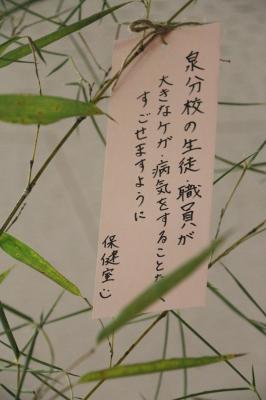 泉分校の生徒・職員が
大きなケガ・病気をすることな
すごせますように
保健室